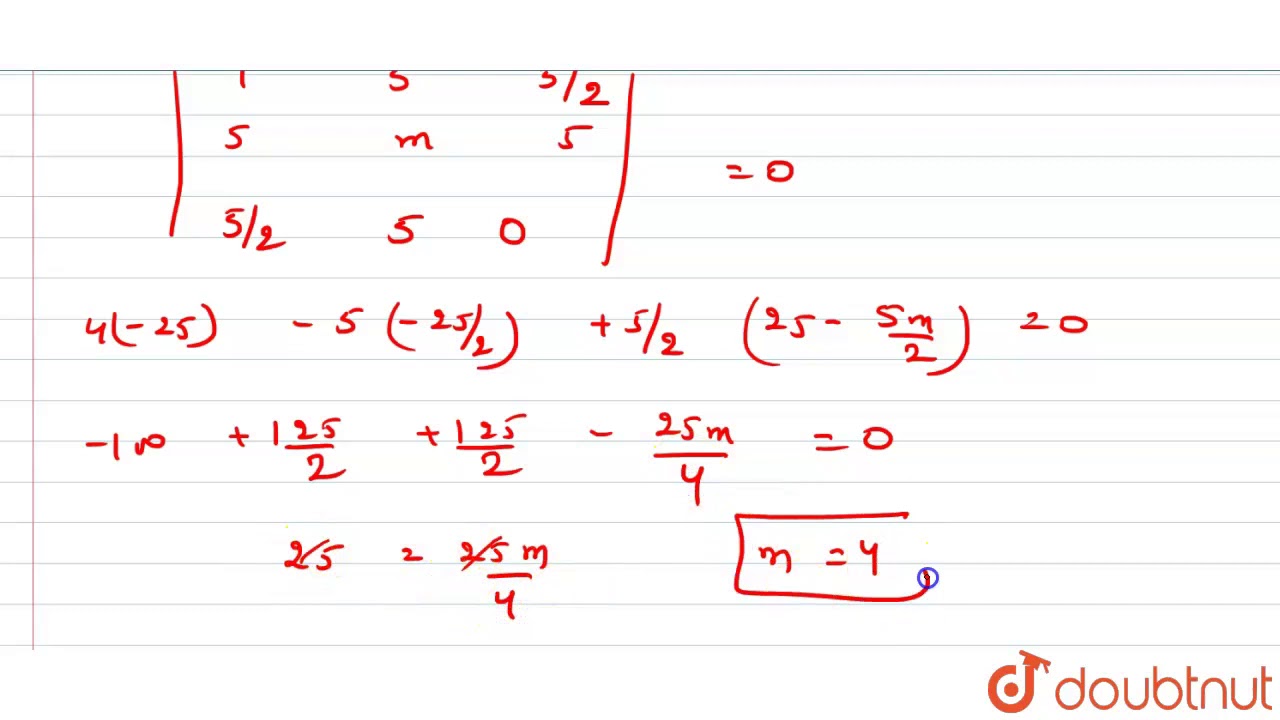 5 5/2
5 m 5
= 0
5/2 5 0
4(-25) - 5 (-25/2) + 5/2 (25 - 5m/2) = 0
-100 + 125/2 + 125/2 - 25m/4 = 0
25 = 25m/4 m = 4
doubtnut